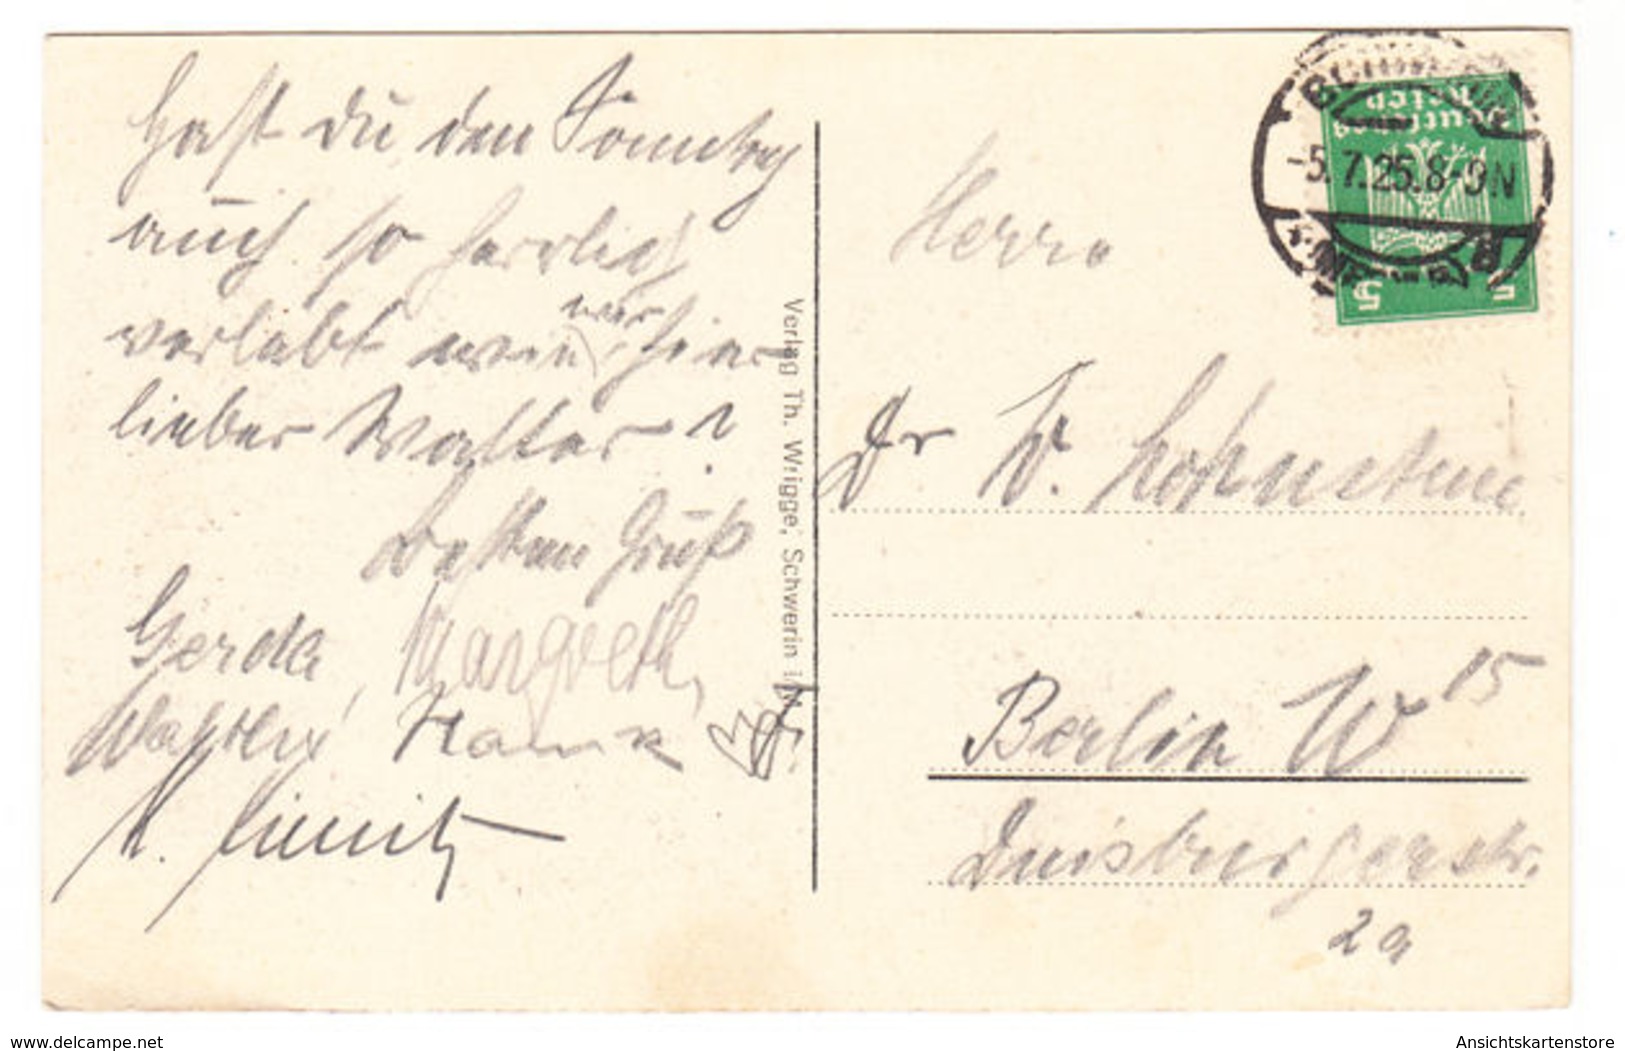 Hast Du den Sonntag
auch so herrlich
verlebt wie wir hier
lieber Walter?
Besten Gruß
Gerda, Margreth,
Verlag Th. Wrigge, Schwerin i/M.
Herrn
Dr W.
Berlin W 15
Duisburgerstr.
2a
-5.7.25.8-9N
B
Deutsches
Reich
5 5
www.delcampe.net
Ansichtskartenstore